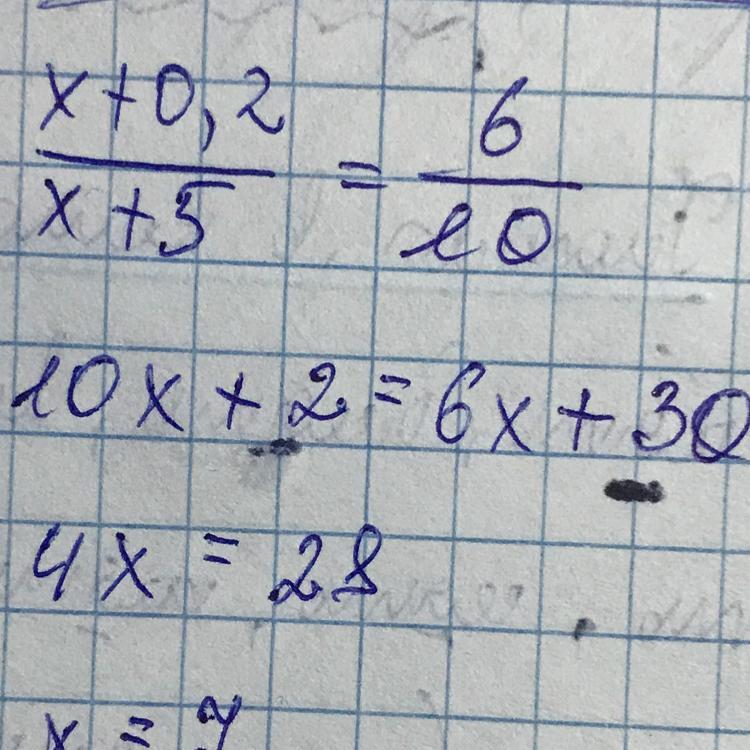 x+0,2 / x+5 = 6 / 10
10x + 2 = 6x + 30
4x = 28
x = 7